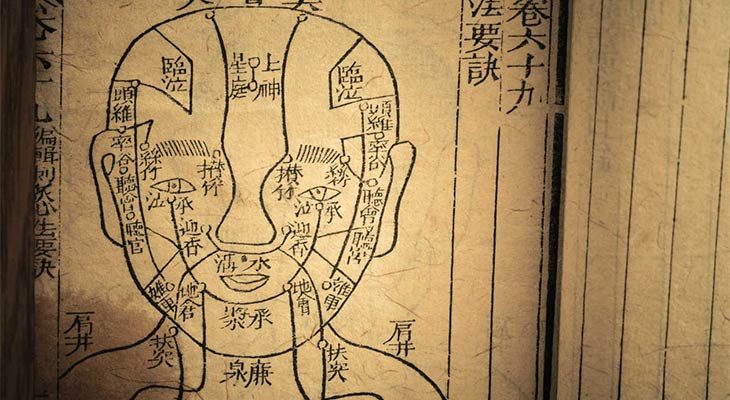 卷六十九
法要訣
上星
神庭
臨泣
臨泣
頭維
頭維
率谷
率谷
絲竹
絲竹
攢竹
攢竹
聽會
聽會
聽宮
承泣
承泣
迎香
迎香
水溝
地倉
承漿
廉泉
扶突
扶突
肩井
肩井
卷六十九
編輯刺灸心法要訣